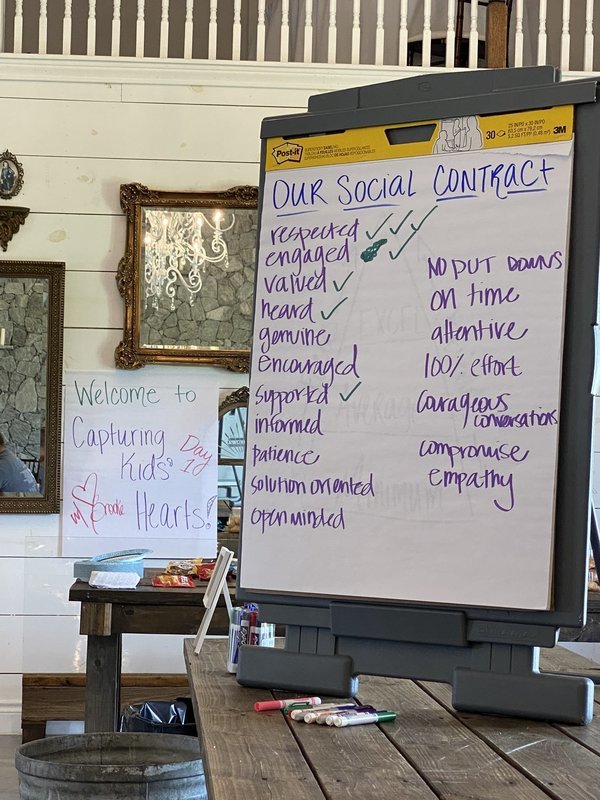 Post-it
30
25 IN/PO x 30 IN/PO
3M
OUR SOCIAL CONTRACT
respected
engaged
valued
heard
genuine
encouraged
supported
informed
patience
solution oriented
openminded
NO PUT DOWNS
on time
attentive
100% effort
courageous
conversations
compromise
empathy
EXCEL
Average
Minimum
Welcome to
Capturing
Kids'
Hearts!
Day
1
Brooke